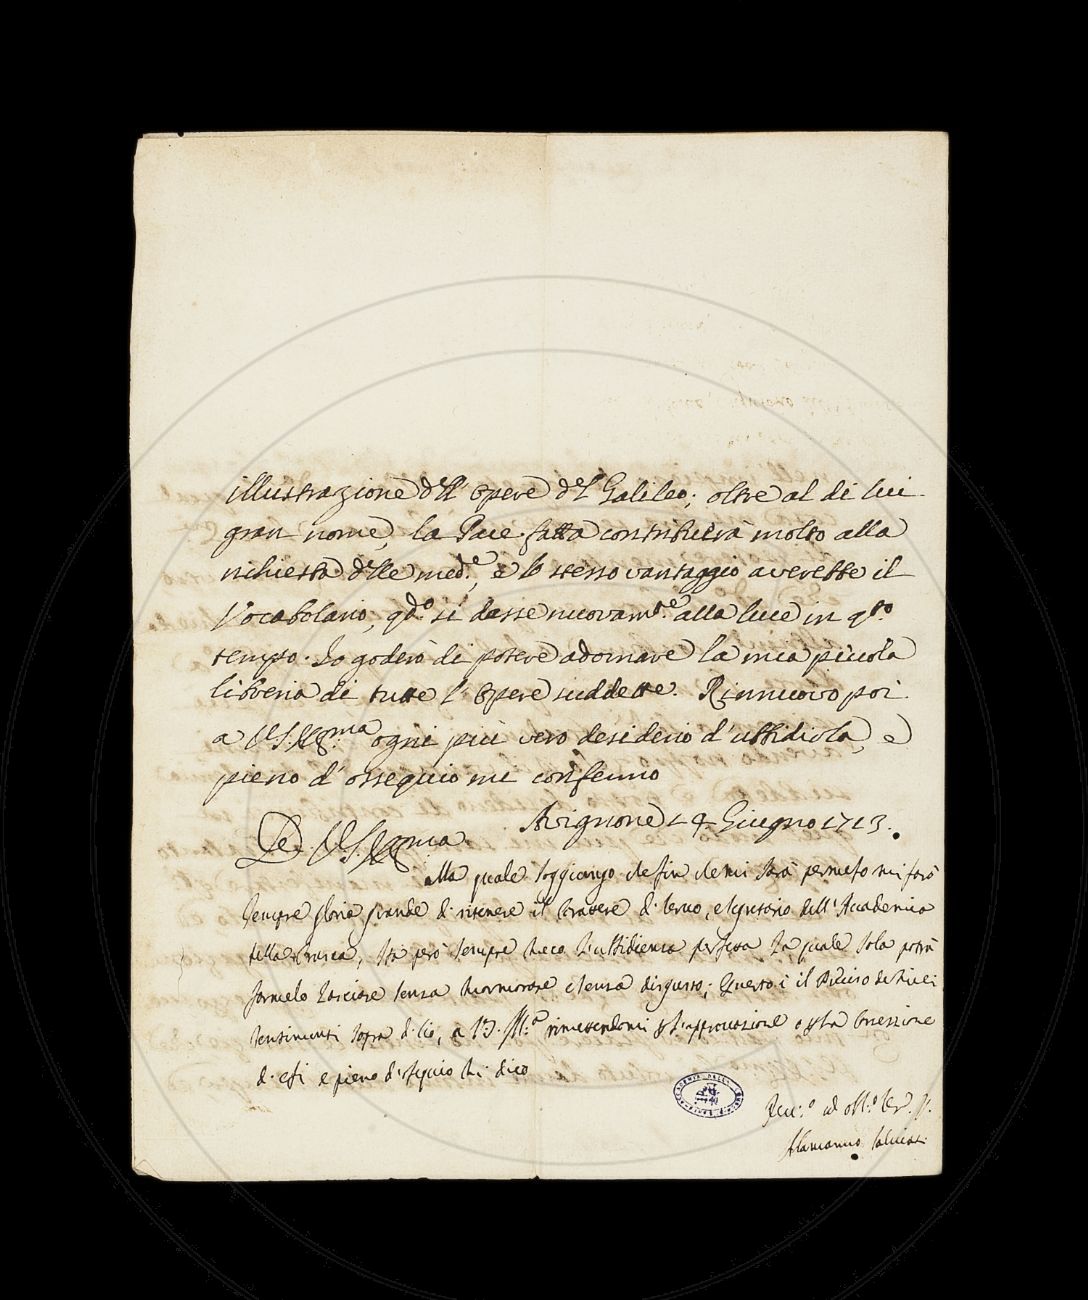 illustrazione dell' Opere del Galileo; oltre al di lui
gran nome, la fatta contribuirà molto alla
richiesta delle med.e, e lo stesso vantaggio averebbe il
Vocabolario, qdo. si dasse nuovamte. alla luce in qsto.
tempo. Io goderò di potere adornare la mia piccola
libreria di tutte l' Opere suddette. Rinnuovo poi
a VS. Illma ogni più vero desiderio d' ubbidirla, e
pieno d' ossequio mi confermo
Avignone 14 Giugno 1713.
Di VS. Illma
alla quale soggiungo che fin che mi sarà permesso mi farò
sempre gloria grande di ritenere il carattere di servo, e segretario dell' Accademia
della Crusca, sta però sempre meco l'ubbidienza perfetta, la quale sola potrà
farmelo lasciare senza mormorare e senza disgusto; Questo è il preciso de miei
sentimenti sopra di ciò, a VS. Ill.a rimettendomi p l'approvazione o p la correzione
di essi e pieno d'ossequio mi dico
ed obb.o Ser.
Alamanno Salviati